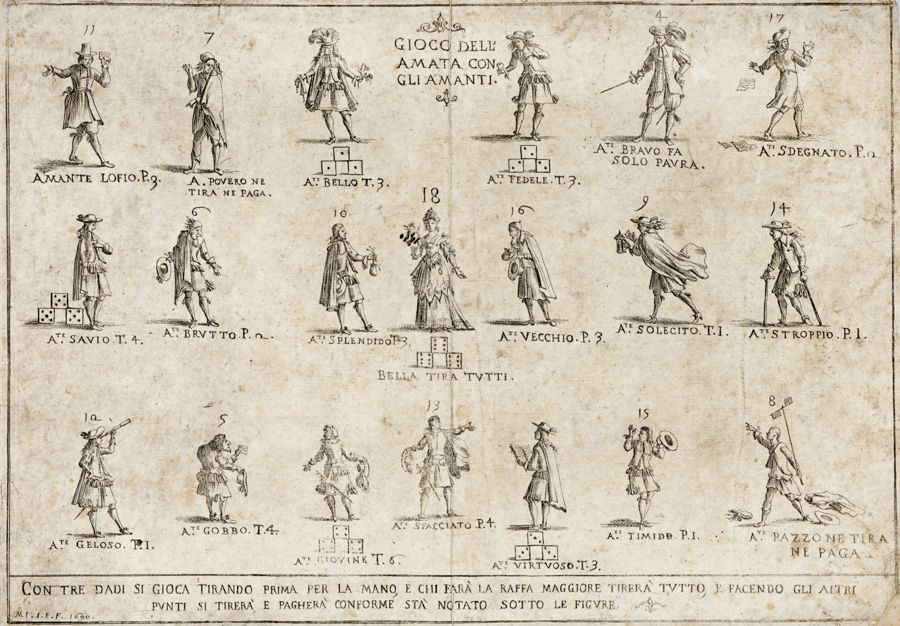 GIOCO DELL'
AMATA CON
GLI AMANTI.
11
AMANTE LOFIO. P. 3.
7
A. POVERO NE
TIRA NE PAGA.
A.TE BELLO T. 3.
A.TE FEDELE. T. 3.
4
A.TE BRAVO FA
SOLO PAVRA.
17
A.TE SDEGNATO. P. 2.
A.TE SAVIO. T. 4.
6
A.TE BRVTTO P. 2.
10
A.TE SPLENDIDO T. 3.
18
BELLA TIRA TVTTI.
16
A.TE VECCHIO. P. 3.
9
A.TE SOLECITO. T. 1.
14
A.TE STROPPIO. P. 1.
12
A.TE GELOSO. T. 1.
5
A.TE GOBBO. T. 4.
A.TE GIOVINE T. 6
13
A.TE SPACCIATO P. 4.
A.TE VIRTVOSO. T. 3.
15
A.TE TIMIDO. P. 1.
8
A.TE PAZZO NE TIRA
NE PAGA
CON TRE DADI SI GIOCA TIRANDO PRIMA PER LA MANO, E CHI FARÀ LA RAFFA MAGGIORE TIRERÀ TVTTO, E FACENDO GLI ALTRI
PVNTI SI TIRERÀ E PAGHERÀ CONFORME STÀ NOTATO SOTTO LE FIGVRE